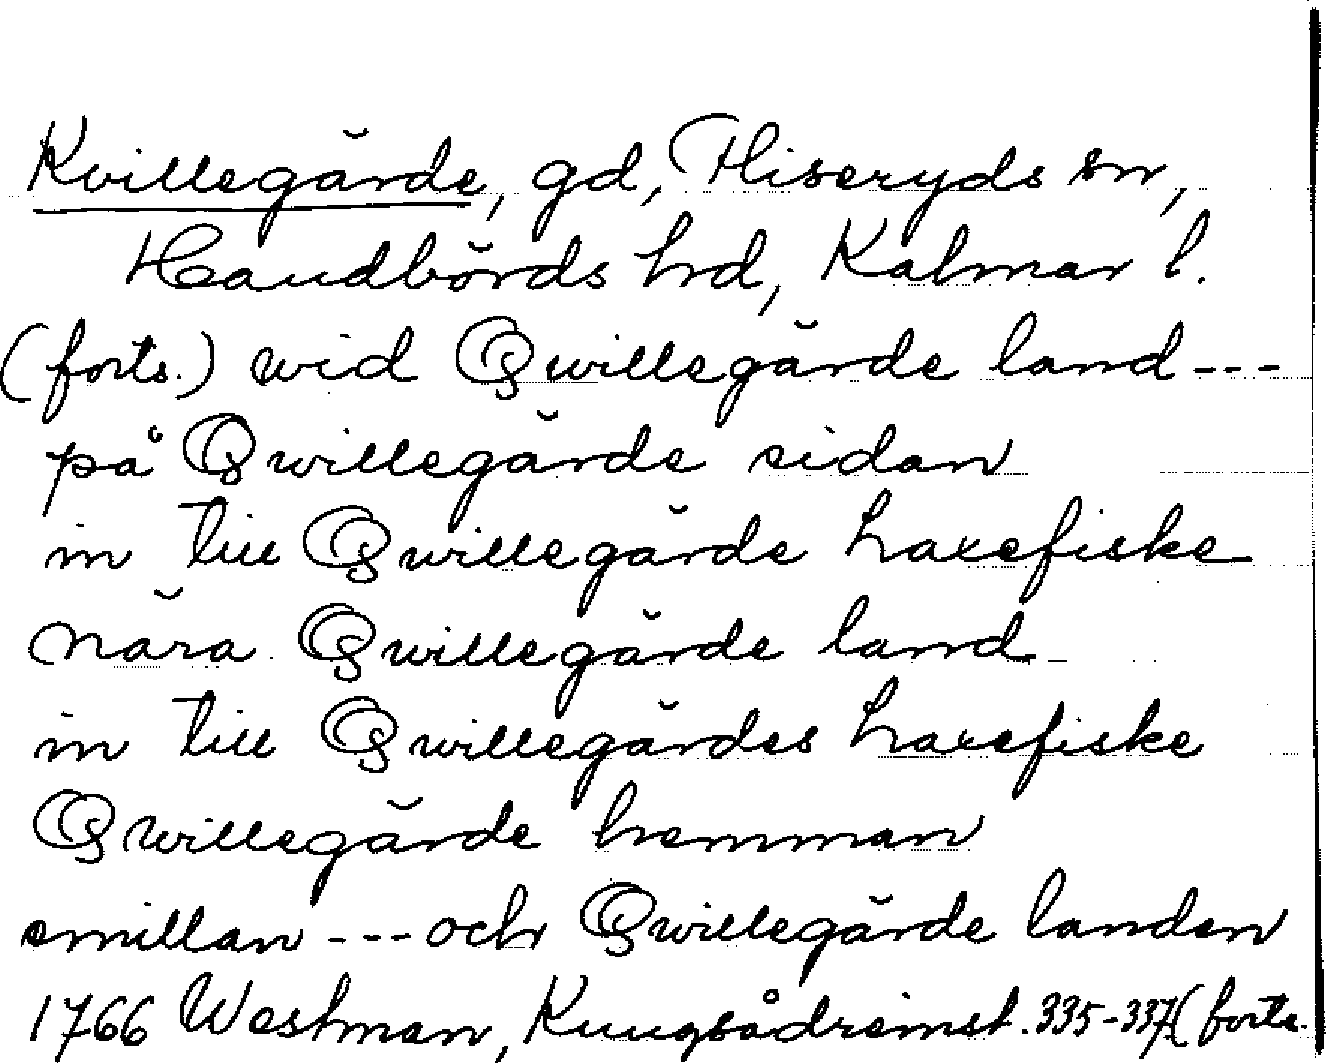 Kvillegärde, gd, Fliseryds sn,
Handbörds hrd, Kalmar l.
(forts.) wid Qwillegärde land---
på Qwillegärde sidan
in till Qwillegärde Laxefiske
Nära Qwillegärde land
in till Qwillegärdes Laxefiske
Qwillegärde hemman
emillan --- och Qwillegärde landen
1766 Westman, Kungsådremst. 335-337 (forts.